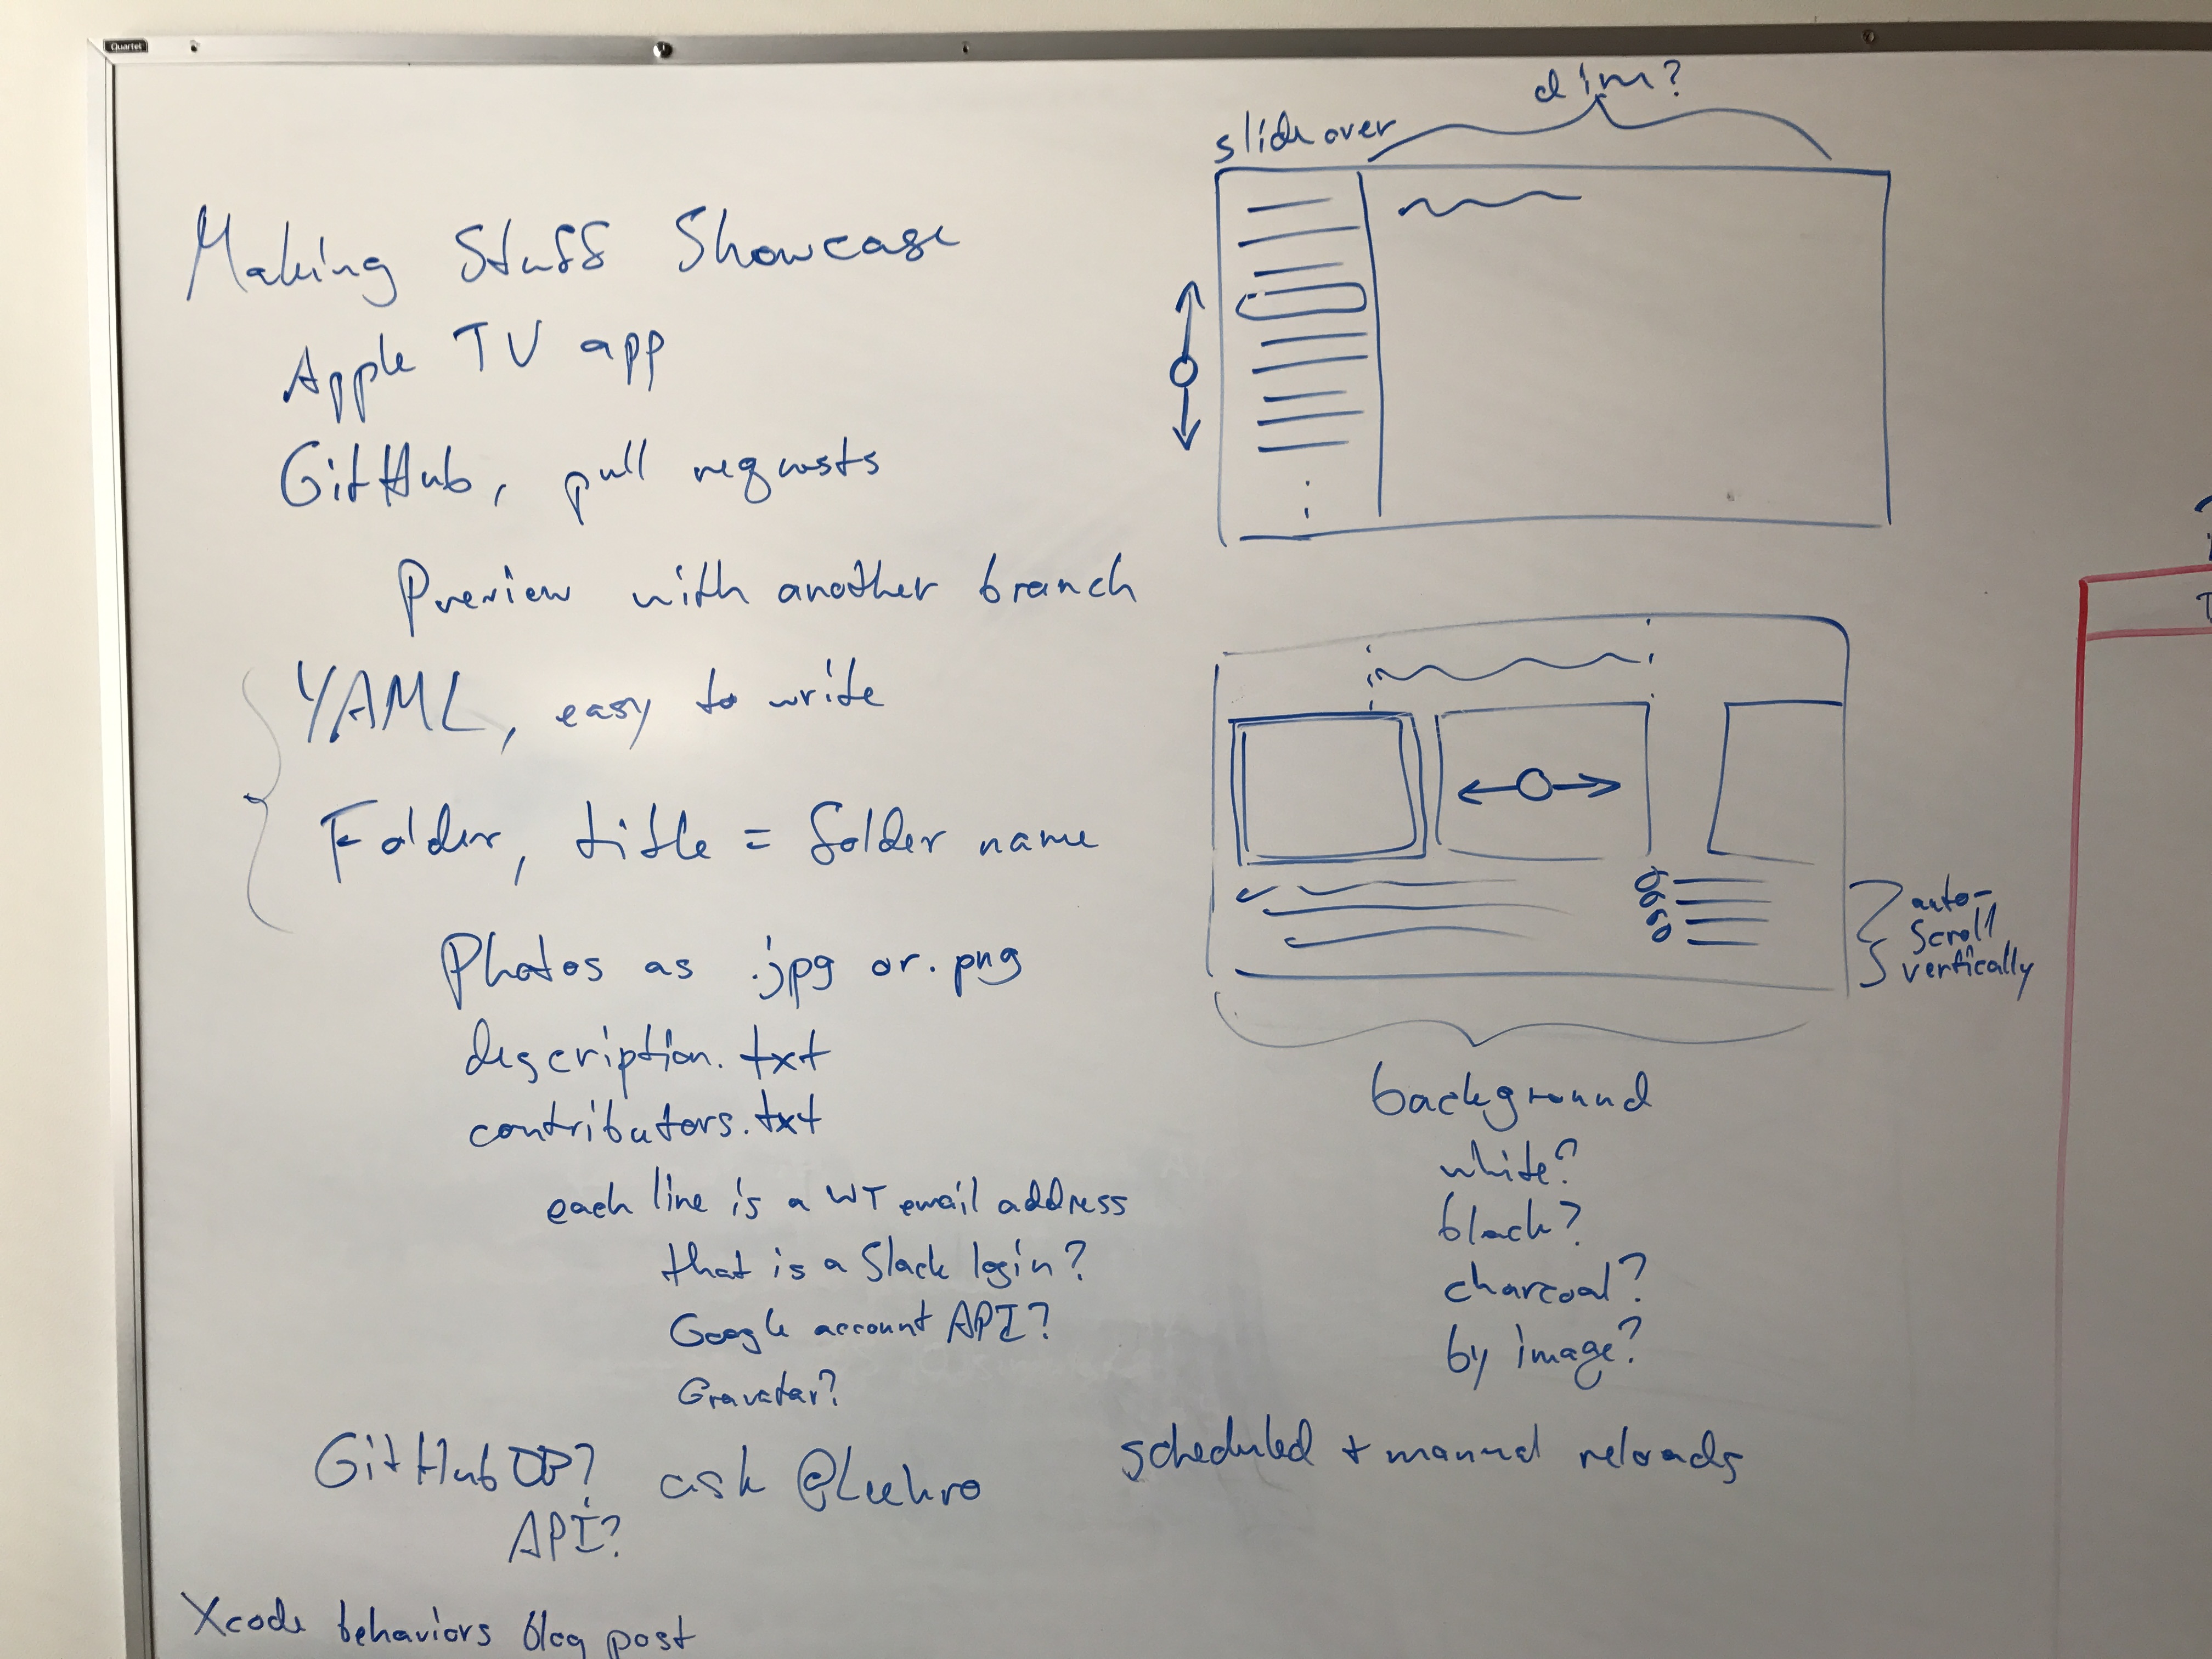 Quartet
Making Stuff Showcase
Apple TV app
GitHub, pull requests
Preview with another branch
YAML, easy to write
Folder, title = folder name
Photos as .jpg or .png
description.txt
contributors.txt
each line is a WT email address
that is a Slack login?
Google account API?
Gravatar?
GitHub ? ask @Leekro
API?
Xcode behaviors blog post
dim?
slide over
auto-
scroll
vertically
background
white?
black?
charcoal?
by image?
scheduled + manual reloads